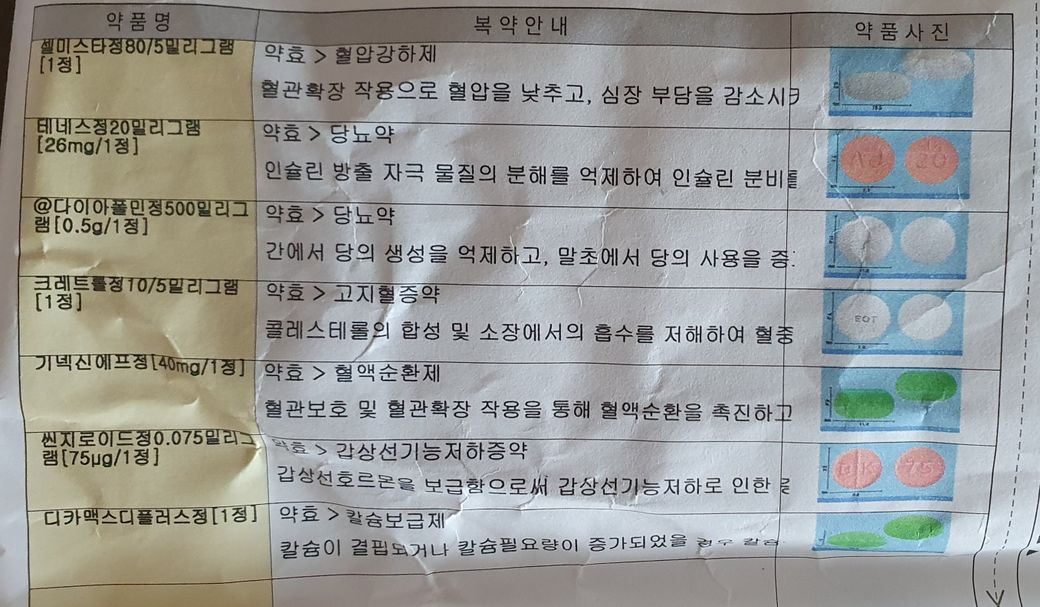 약품명 복약안내 약품사진
셀미스타정80/5밀리그램
[1정]
약효 > 혈압강하제
혈관확장 작용으로 혈압을 낮추고, 심장 부담을 감소시키
테네스정20밀리그램
[26mg/1정]
약효 > 당뇨약
인슐린 방출 자극 물질의 분해를 억제하여 인슐린 분비를
20
@다이아폴민정500밀리그
램[0.5g/1정]
약효 > 당뇨약
간에서 당의 생성을 억제하고, 말초에서 당의 사용을 증
크레트롤정10/5밀리그램
[1정]
약효 > 고지혈증약
콜레스테롤의 합성 및 소장에서의 흡수를 저해하여 혈중
기넥신에프정[40mg/1정]
약효 > 혈액순환제
혈관보호 및 혈관확장 작용을 통해 혈액순환을 촉진하고
씬지로이드정0.075밀리그
램[75μg/1정]
약효 > 갑상선기능저하증약
갑상선호르몬을 보급함으로써 갑상선기능저하로 인한
75
디카맥스디플러스정[1정]
약효 > 칼슘보급제
칼슘이 결핍되거나 칼슘필요량이 증가되었을 경우 칼슘